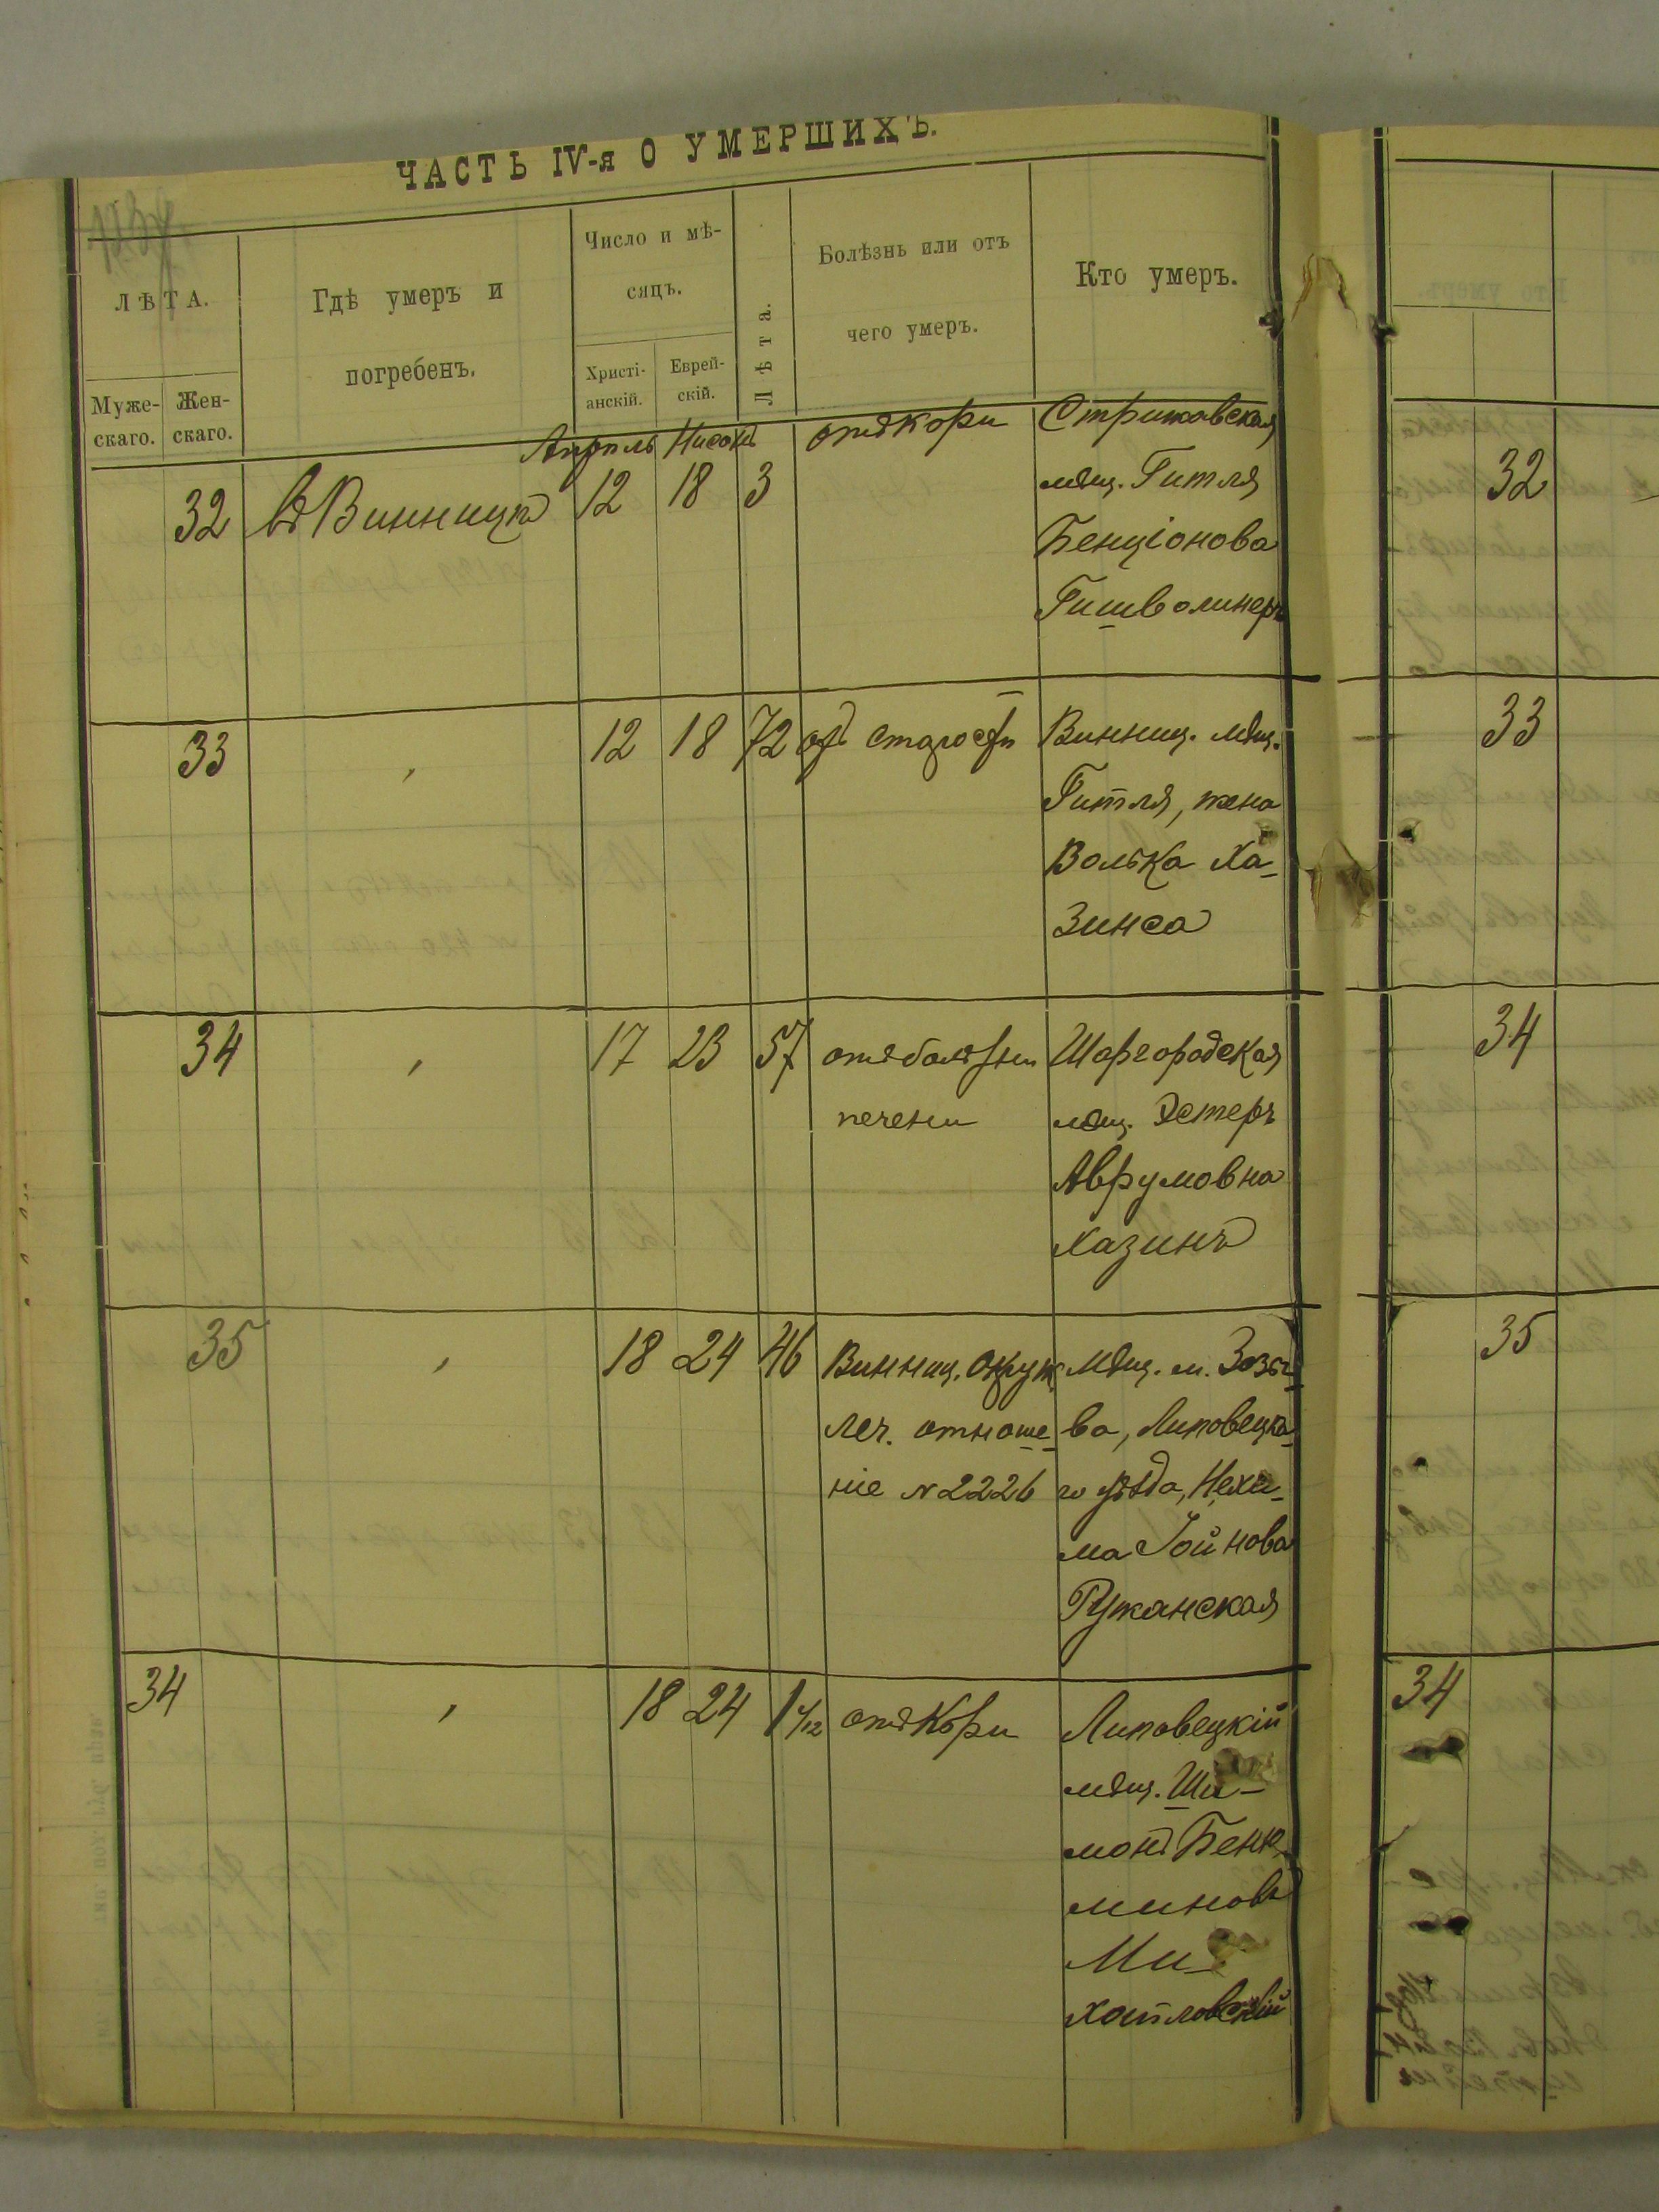 ЧАСТЬ IV-я О УМЕРШИХЪ.
ЛѢТА.
Муже-
скаго.
Жен-
скаго.
Гдѣ умеръ и
погребенъ.
Число и мѣ-
сяцъ.
Христі-
анскій.
Еврей-
скій.
Лѣта.
Болѣзнь или отъ
чего умеръ.
Кто умеръ.
Апрѣль Нисонъ
32 въ Винницѣ 12 18 3 отъ кори Стрижовская
мѣщ. Гитля
Бенціонова
Гишволинеръ
33 " 12 18 72 отъ старости Винниц. мѣщ.
Гитля, жена
Волька Ха-
зинса
34 " 17 23 57 отъ болѣзни Шаргородская
печени мѣщ. Эстеръ
Аврумовна
Хазинъ
35 " 18 24 46 Винниц. Окруж. мѣщ. м. Зозы-
леч. отноше- ва, Липовецка-
ніе №2226 го уѣзда, Неха-
ма Іойнова
Ружанская
34 " 18 24 1 1/12 отъ кори Липовецкій
мѣщ. Ши-
монъ Беню-
миновъ
Ми-
хайловскій
32
33
34
35
34